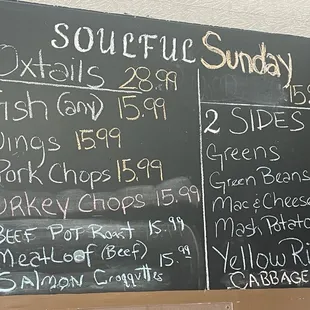 SOULFUL Sunday
Oxtails 28.99
Fish (any) 15.99
Wings 15.99
Pork Chops 15.99
Turkey Chops 15.99
BEEF POT Roast 15.99
MeatLoaf (Beef) 15.99
SALMON Croqquttes
15
2 SIDES
Greens
Green Beans
Mac & Cheese
Mash Potato
Yellow Ri
CABBAGE